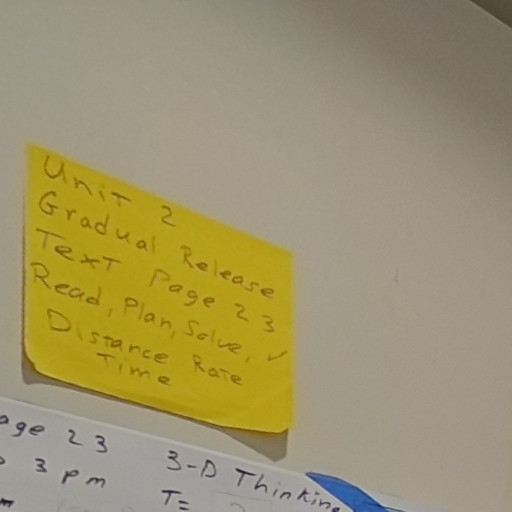 Unit 2
Gradual Release
Text Page 23
Read, Plan, Solve, ✓
Distance Rate
Time
age 23
3 pm
3-D Thinking
T=